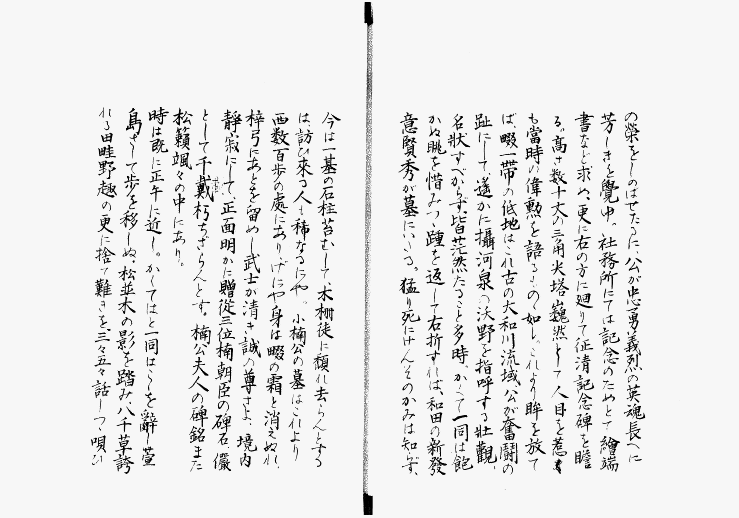 の榮をしのばせたるに、公が忠勇義烈の英魂長へに
芳しきを覺ゆ。社務所にては記念のためとて繪端
書など求め、更に右の方に廻りて征清記念碑を瞻
る。高さ數十丈の三角尖塔巍然として人目を惹き
も當時の偉勲を語るものゝ如し。これより眸を放て
ば、畷一帶の低地はこれ古の大和川流域、公が奮鬪の
趾にして遙かに攝河泉の沃野を指呼する壯觀、
名狀すべからず、皆茫然たること多時、かくて一同は飽
かぬ眺を惜みつゝ踵を返して右折すれば、和田の新發
意賢秀が墓にいたる。猛り死にけんそのかみは知らず、
今は一基の石柱苔むして、木柵徒に頽れ去らんとする
は、訪ひ來る人も稀なるにや。小楠公の墓はこれより
西數百歩の處にあり。げにや身は畷の霜と消えぬれ、
梓弓にあとを留めし武士が清き誠の尊さよ、境内
靜寂にして、正面明かに贈從三位楠朝臣の碑石儼
として千載朽ちざらんとす。楠公夫人の碑銘また
松籟颯々の中にあり。
時は既に正午に近し。かくてはと一同はこゝを辭し萱
島さして歩を移しぬ、松並木の影を踏み、八千草誇
れる田畦野趣の更に捨て難きを、三々五々話しつゝ唄ひ